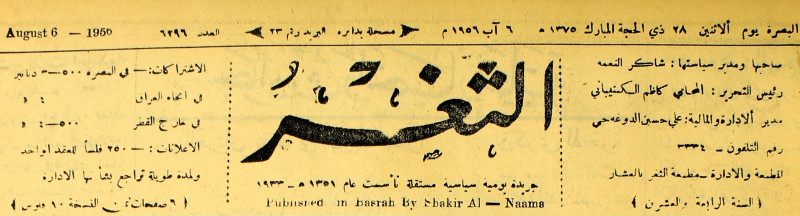 البصرة يوم ألاثنين ٢٨ ذي الحجة المبارك ١٣٧٥ هـ ٦ آب ١٩٥٦ م مسجلة بدائرة البريد رقم ٢٣ العدد ٦٢٩٦ August 6 — 1956
صاحبها ومدير سياستها : شاكر النعمه
رئيس التحرير : المحامي كاظم السكتيباني
مدير ألادارة والمالية : علي حسين الدوغه جي
رقم التلفون - ٣٣٣٤
المطبعة والادارة - مطبعة الثغر بالعشار
( السنة الرابعة والعشرون )
الثغر
جريدة يومية سياسية مستقلة تأسست عام ١٣٥١ هـ - ١٩٣٣
Published in Basrah By Shakir Al — Naama
الاشتراكات :- في البصرة ٥٠٠-٣ دنانير
في انحاء العراق ٤ د
في خارج القطر ٥٠٠-٤ د
الاعلانات :- ٢٥٠ فلساً للعقد الواحد
ولمدة طويلة تراجع بشأنها الادارة
( ٦ صفحات ثمن النسخة ١٠ فلوس )